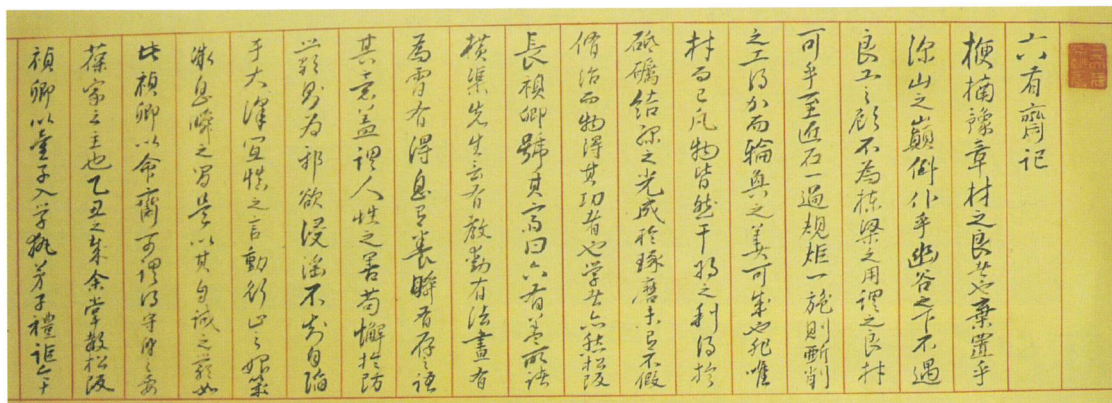 六有齋記
梗楠豫章材之良者也棄置乎
深山之巔倒仆乎幽谷之下不遇
良工之顧不為棟梁之用謂之良材
可乎至匠石一過規矩一施則斲削
之工得加而輪奐之美可成也非唯
材而已凡物皆然干將之利得於
砥礪結綠之光成於琢磨未有不假
脩治而物得其功者也学者亦然松阪
長禎卿號其齋曰六有蓋所謂
橫渠先生云言有教動有法晝有
為宵有得息有養瞬有存之語
其意蓋謂人性之善苟懈於防
嚴則為邪欲浸淫不知自陷
于大澤宜慎之言動行止之
息瞬之間是以其自誡之嚴如
此禎卿以命齋可謂得守身之要
葆家之主也乙丑之歲余掌教松阪
禎卿以童子入学執弟子禮距今十